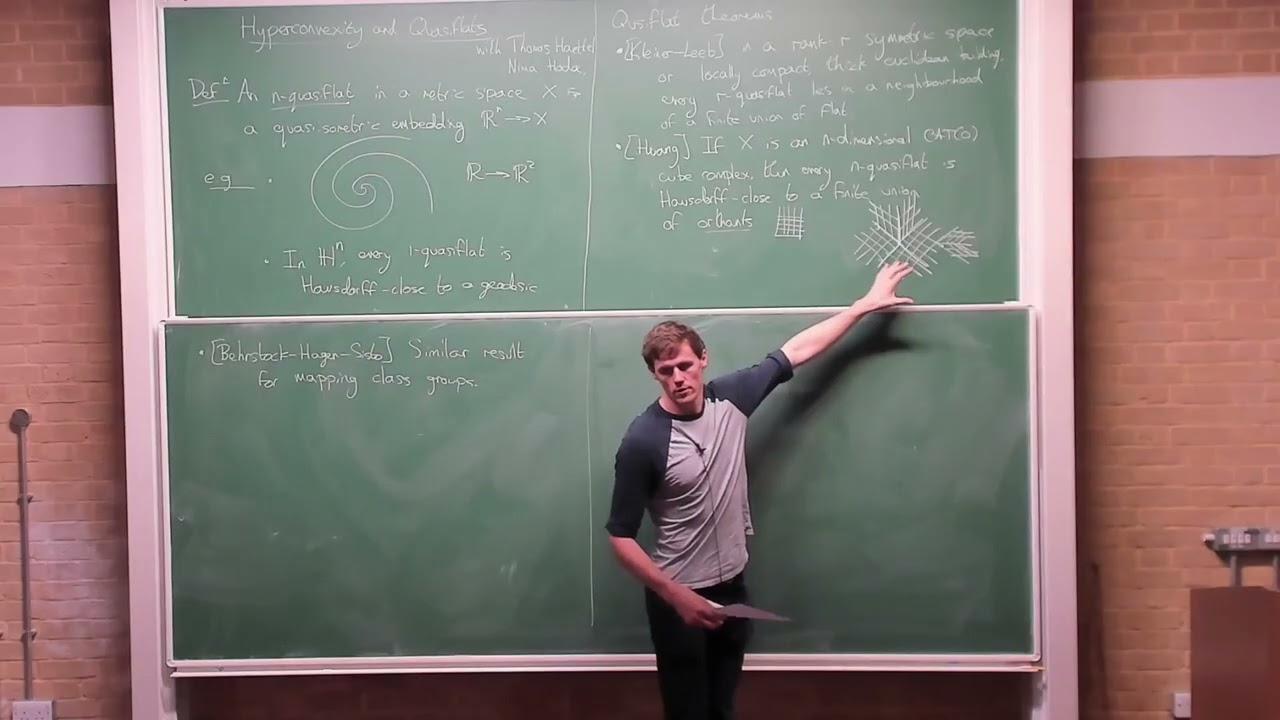 Hyperconvexity and Quasiflats
with Thomas Haettel
Nima Hoda,
Defⁿ An n-quasiflat in a metric space X is
a quasiisometric embedding ℝⁿ → X
e.g.
ℝ → ℝ²
• In ℍⁿ, every 1-quasiflat is
Hausdorff-close to a geodesic
Quasiflat theorems
• [Kleiner-Leeb] In a rank-r symmetric space
or locally compact, thick euclidean building,
every r-quasiflat lies in a neighbourhood
of a finite union of flat
• [Huang] If X is an n-dimensional CAT(0)
cube complex, then every n-quasiflat is
Hausdorff-close to a finite union
of orthants
• [Behrstock-Hagen-Sisto] Similar result
for mapping class groups.